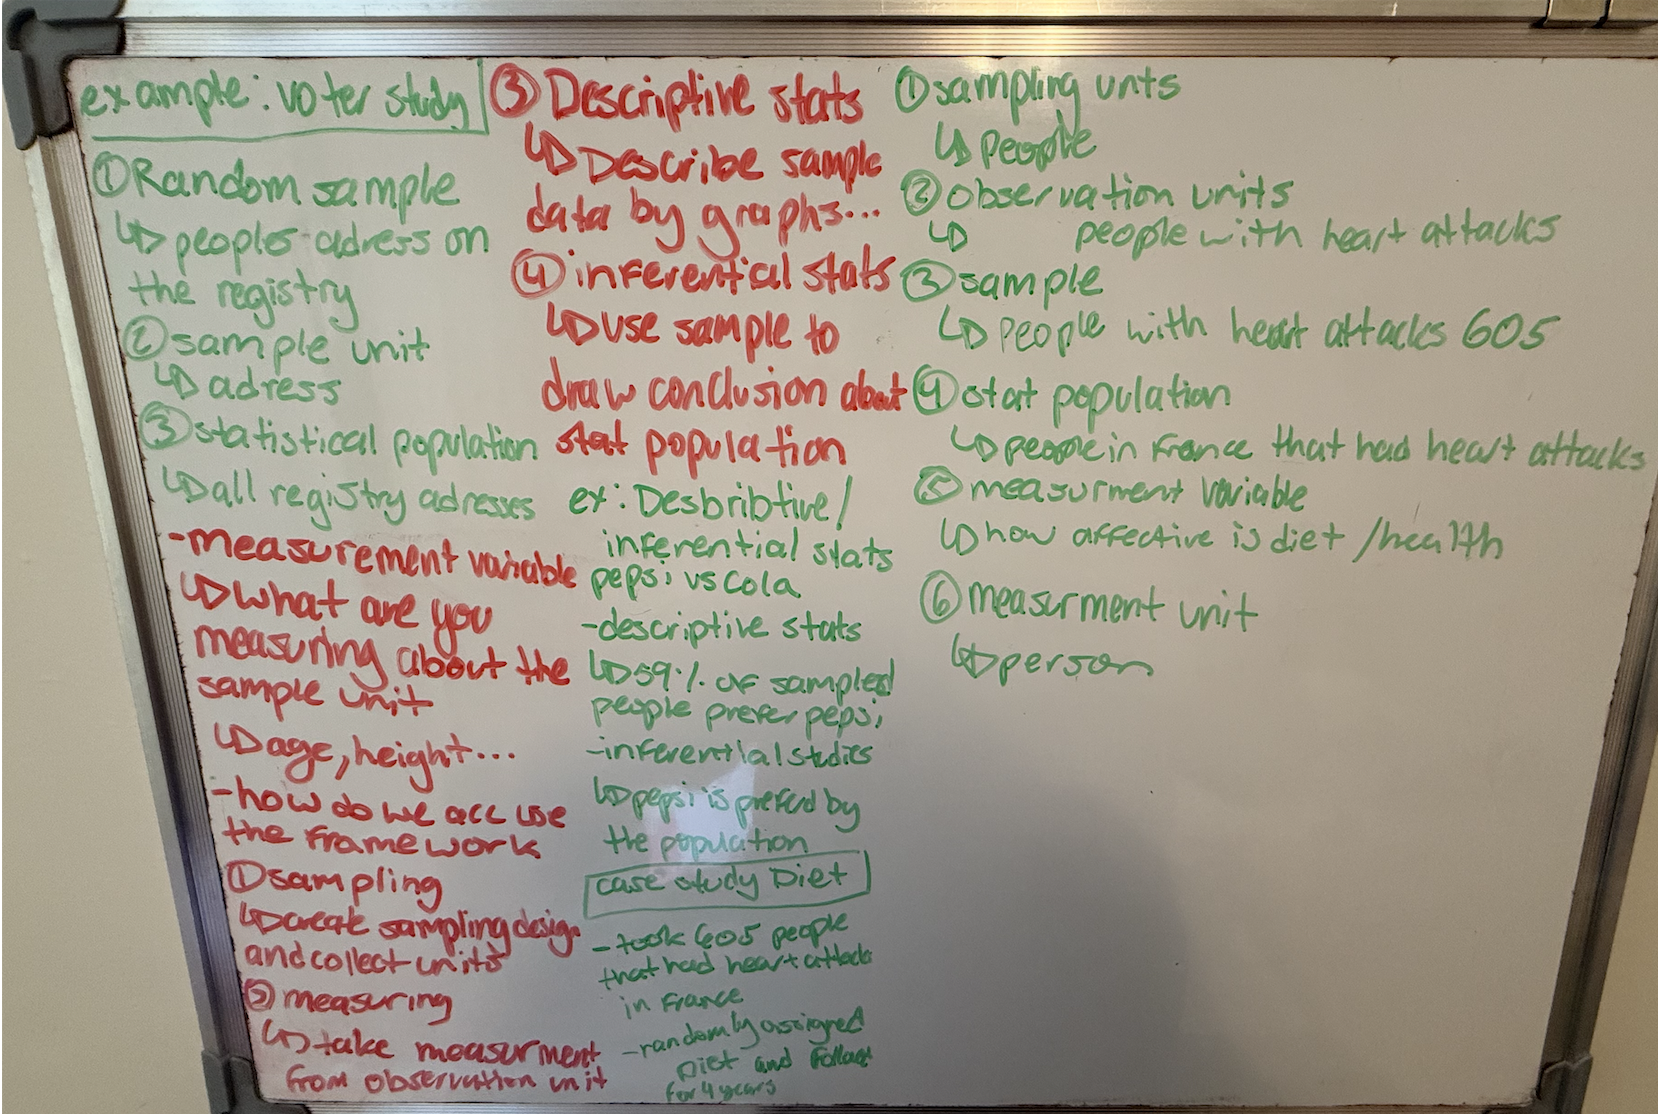 example: voter study
①Random sample
↳peoples adress on
the registry
②sample unit
↳adress
③statistical population
↳all registry adresses
-measurement variable
↳what are you
measuring about the
sample unit
↳age, height...
-how do we acc use
the framework
①sampling
↳create sampling design
and collect units
②measuring
↳take measurment
from observation unit
③Descriptive stats
↳Describe sample
data by graphs...
④inferential stats
↳use sample to
draw conclusion about
stat population
ex: Desbribtive/
inferential stats
pepsi vs cola
-descriptive stats
↳59% of sampled
people prefer pepsi
-inferential studies
↳pepsi is preferd by
the population
case study Diet
-took 605 people
that had heart attack
in France
-randomly assigned
Diet and follow
for 4 years
①sampling unts
↳people
②observation units
↳ people with heart attacks
③sample
↳people with heart attacks 605
④stat population
↳people in France that had heart attacks
⑤measurment variable
↳how affective is diet /health
⑥measurment unit
↳person